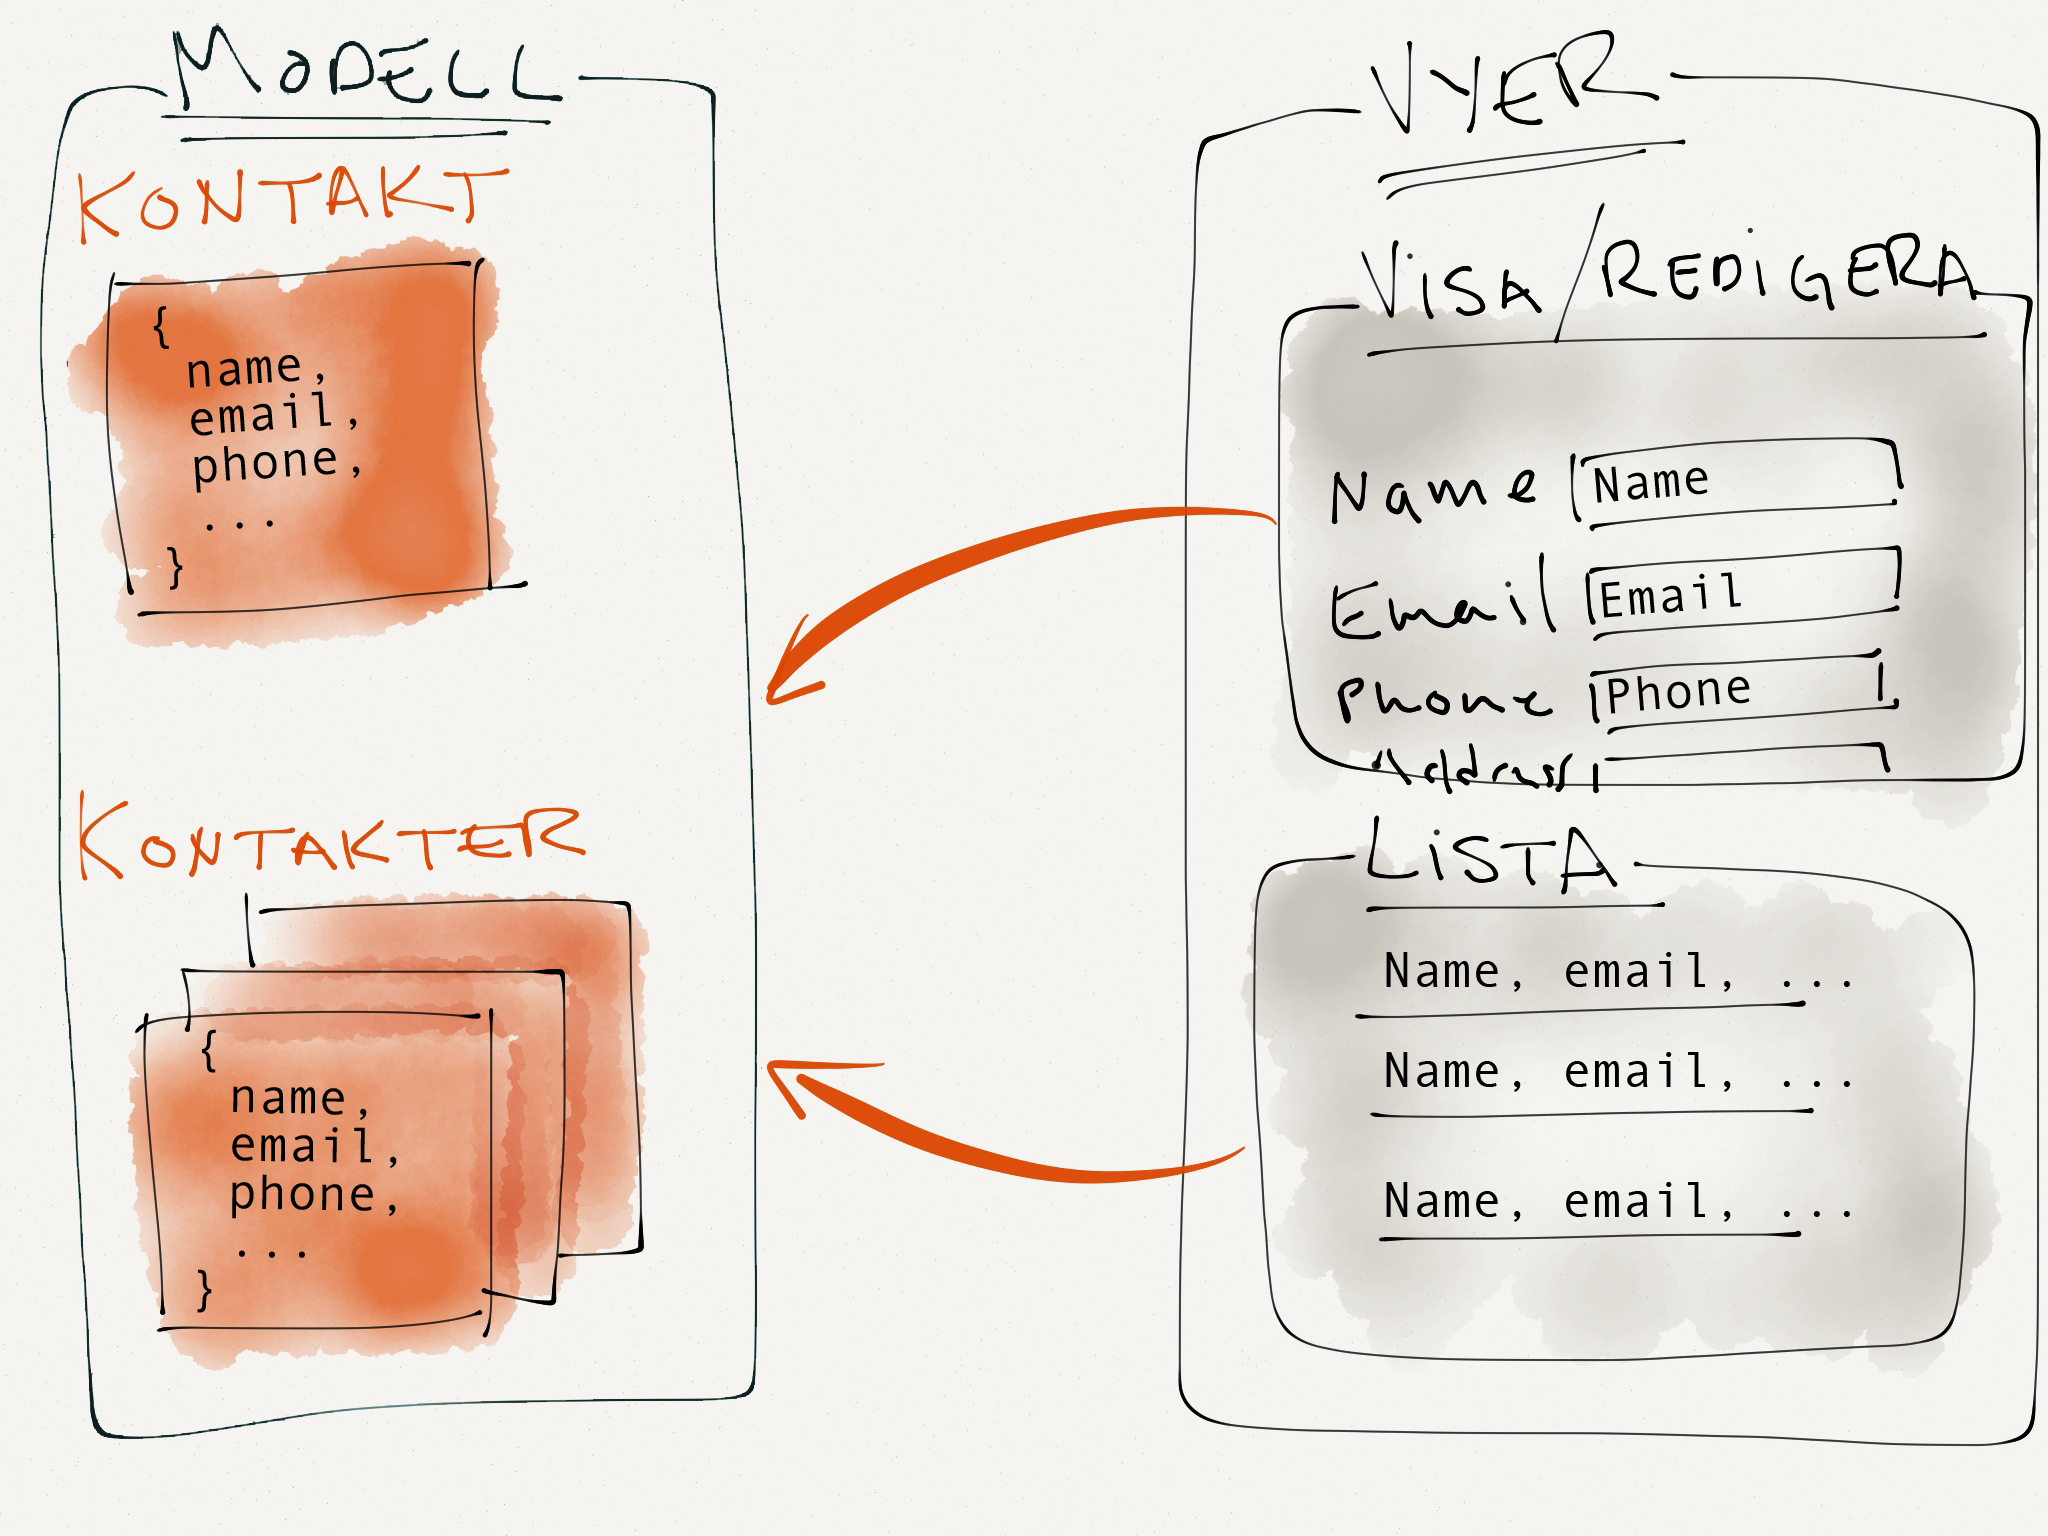 MODELL
KONTAKT
{
name,
email,
phone,
...
}
KONTAKTER
{
name,
email,
phone,
...
}
VYER
VISA/REDIGERA
Name Name
Email Email
Phone Phone
Address
LISTA
Name, email, ...
Name, email, ...
Name, email, ...